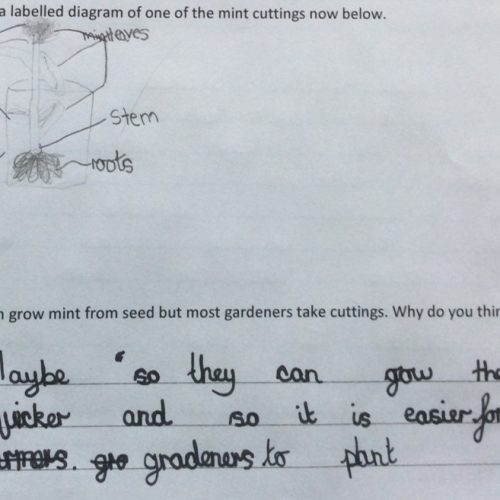 a labelled diagram of one of the mint cuttings now below.
mint leaves
stem
roots
n grow mint from seed but most gardeners take cuttings. Why do you thin
aybe so they can grow the
quicker and so it is easier for
gradeners to plant